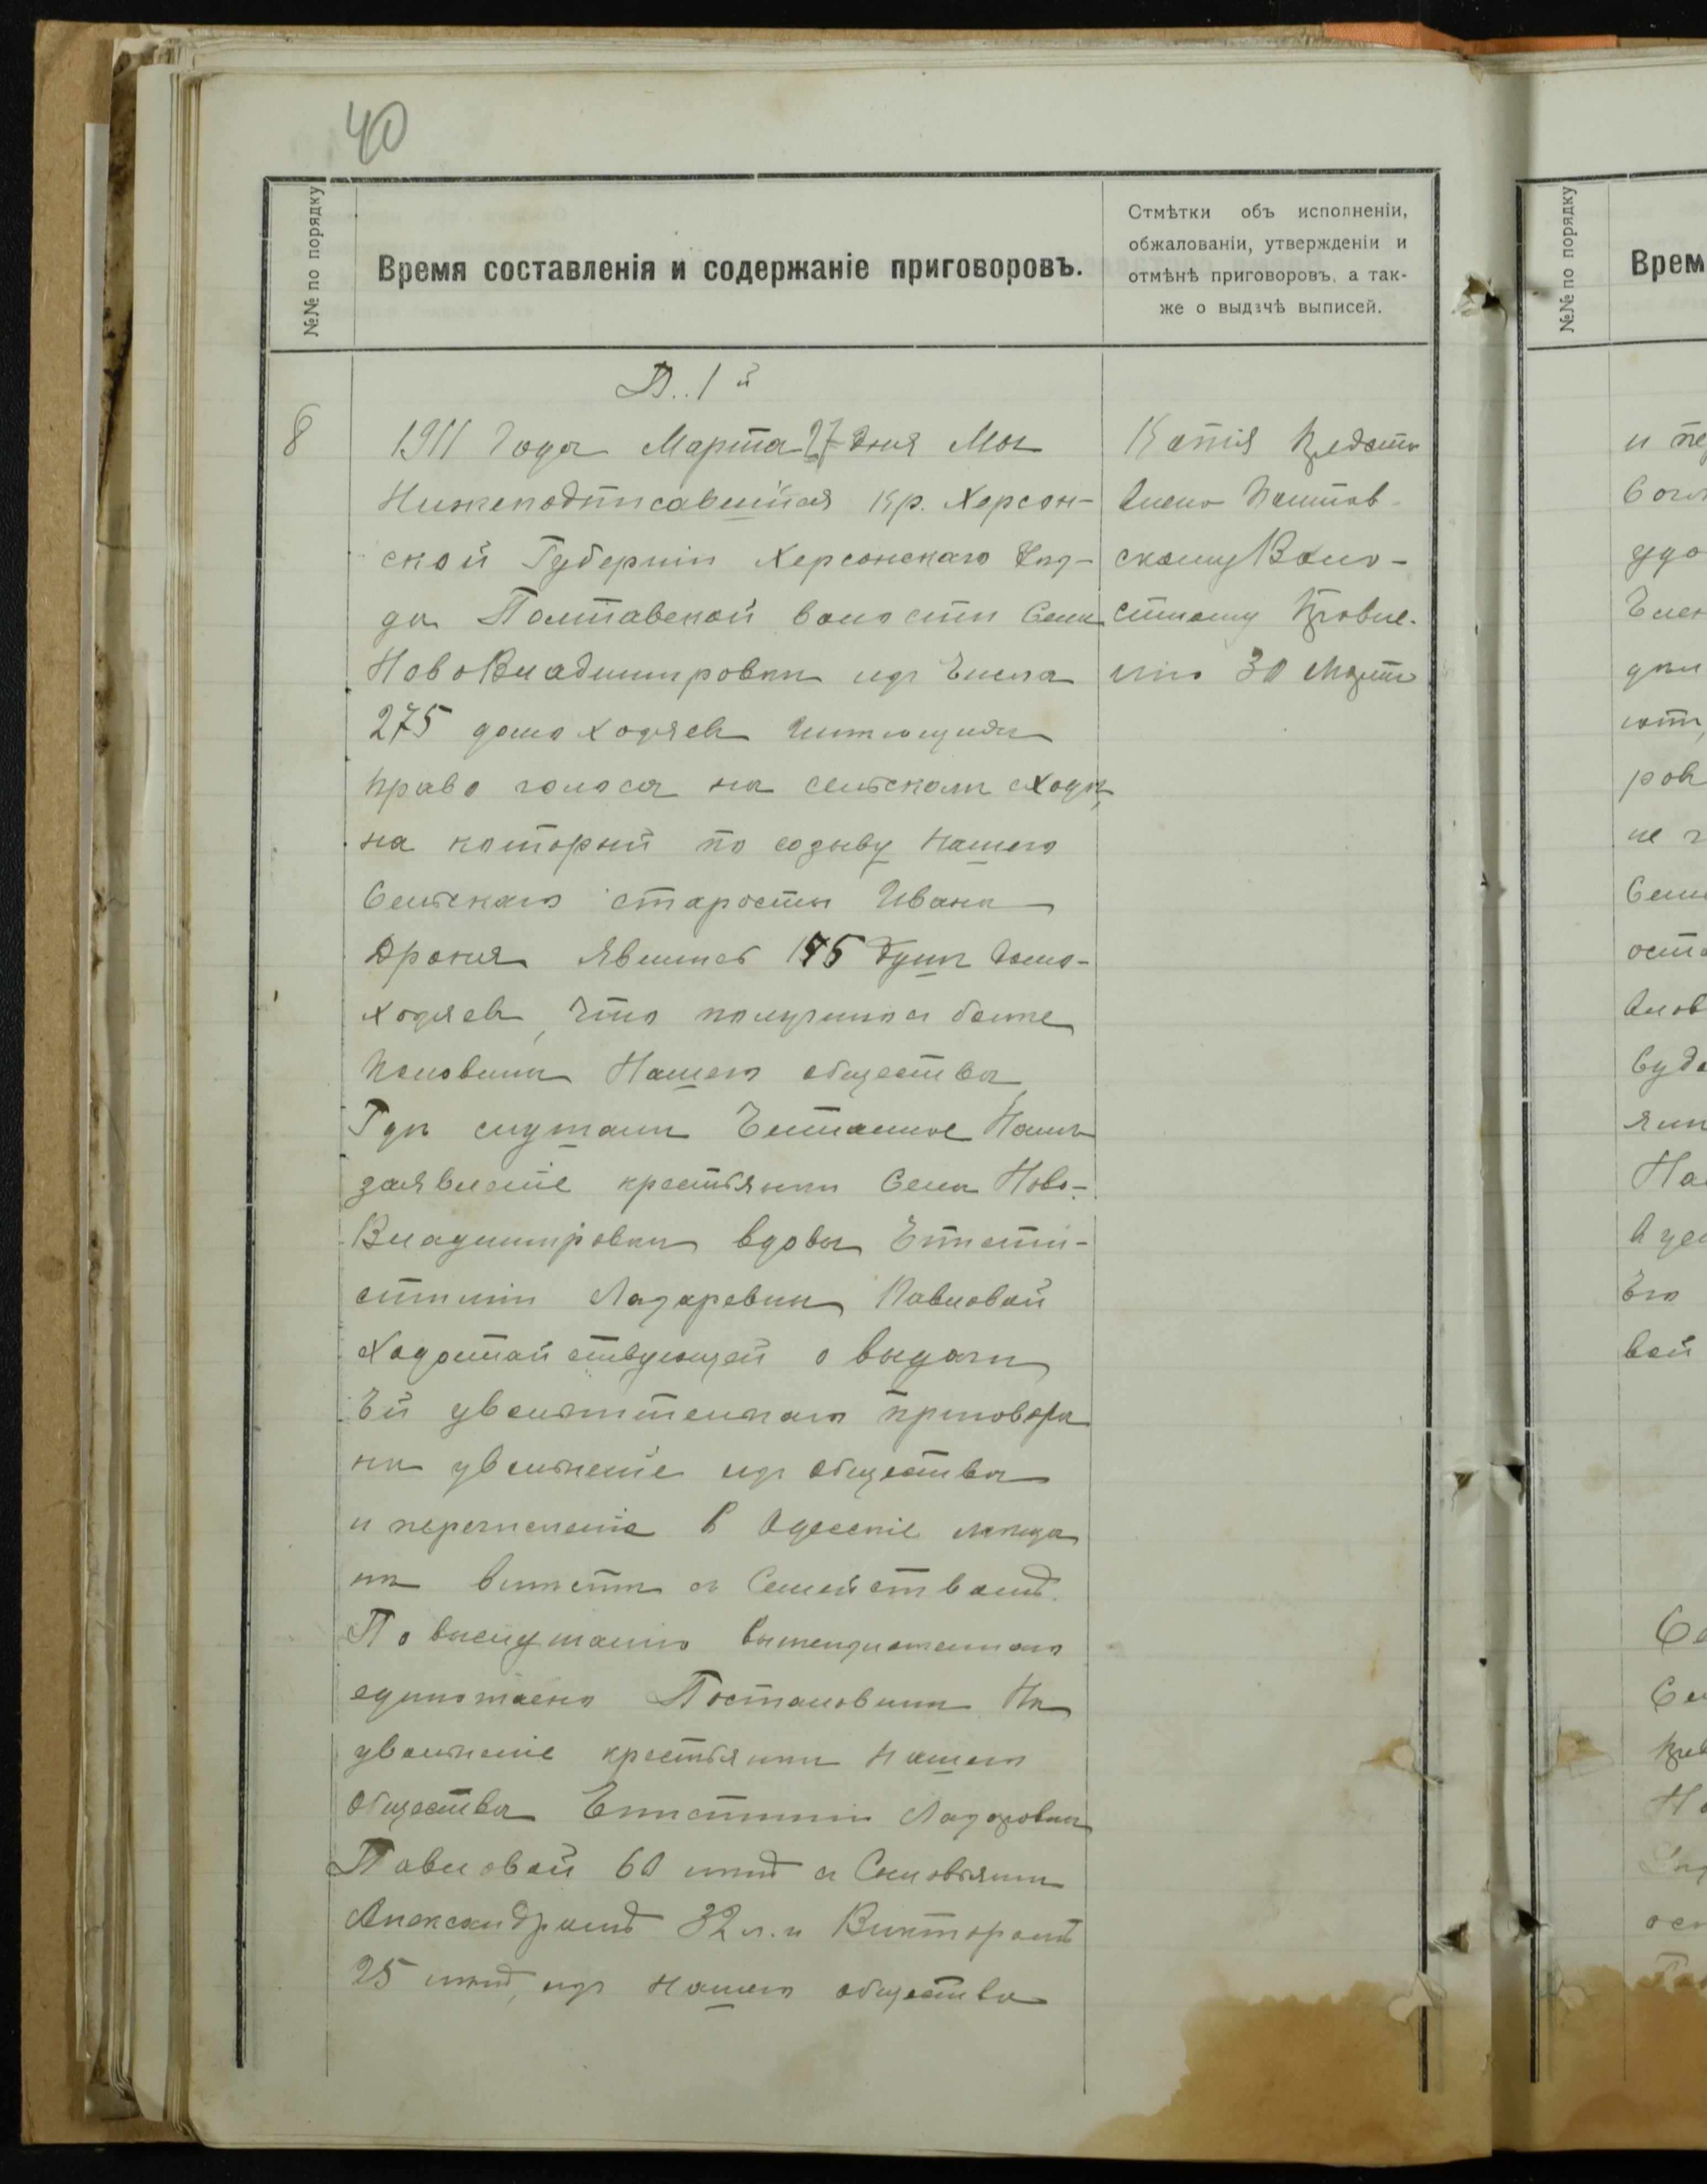 40
№№ по порядку
Время составленія и содержаніе приговоровъ.
Отмѣтки объ исполненіи,
обжалованіи, утвержденіи и
отмѣнѣ приговоровъ, а так-
же о выдачѣ выписей.
1й
8
1911 Года Марта 27 дня Мы
Нижеподписавшіися Кр. Херсон-
ской Губерніи Херсонскаго Уѣз-
да Полтавской волости Села
НовоВладимировки изъ Числа
275 домохозяевъ Имѣющихъ
право голоса на сельскомъ сходѣ,
на который по созыву Нашего
Сельскаго старосты Ивана
явились душъ домо-
хозяевъ, Что получилось болѣе
Половины Нашего общества
Гдѣ слушали Читанное Намъ
заявленіе крестьянки Села Ново-
Владимировки вдовы Еписти-
Лазаревны Павловой
Ходотайствующей о выдачи
Ей увольнительнаго приговора
на увольненіе изъ общества
и перечисленіе в Одесскіе мѣща
не вместѣ съ Семействомъ.
По выслушанію вышеизложеннаго
единогласно Постановили На
увольненіе крестьянки Нашего
Общества Епистиміи Лазаровны
Павловой 60 лѣтъ съ Сыновьями
Александромъ 32 л. и Викторомъ
25 лѣтъ, изъ Нашего общества
Копія Предста
влено Полтав-
скому Воло-
стному Правле-
нію 30 Марта
№№ по порядку
Врем
и пе
удо
ров
не
Села
оста
буд
На
Его
вой
Се
Но